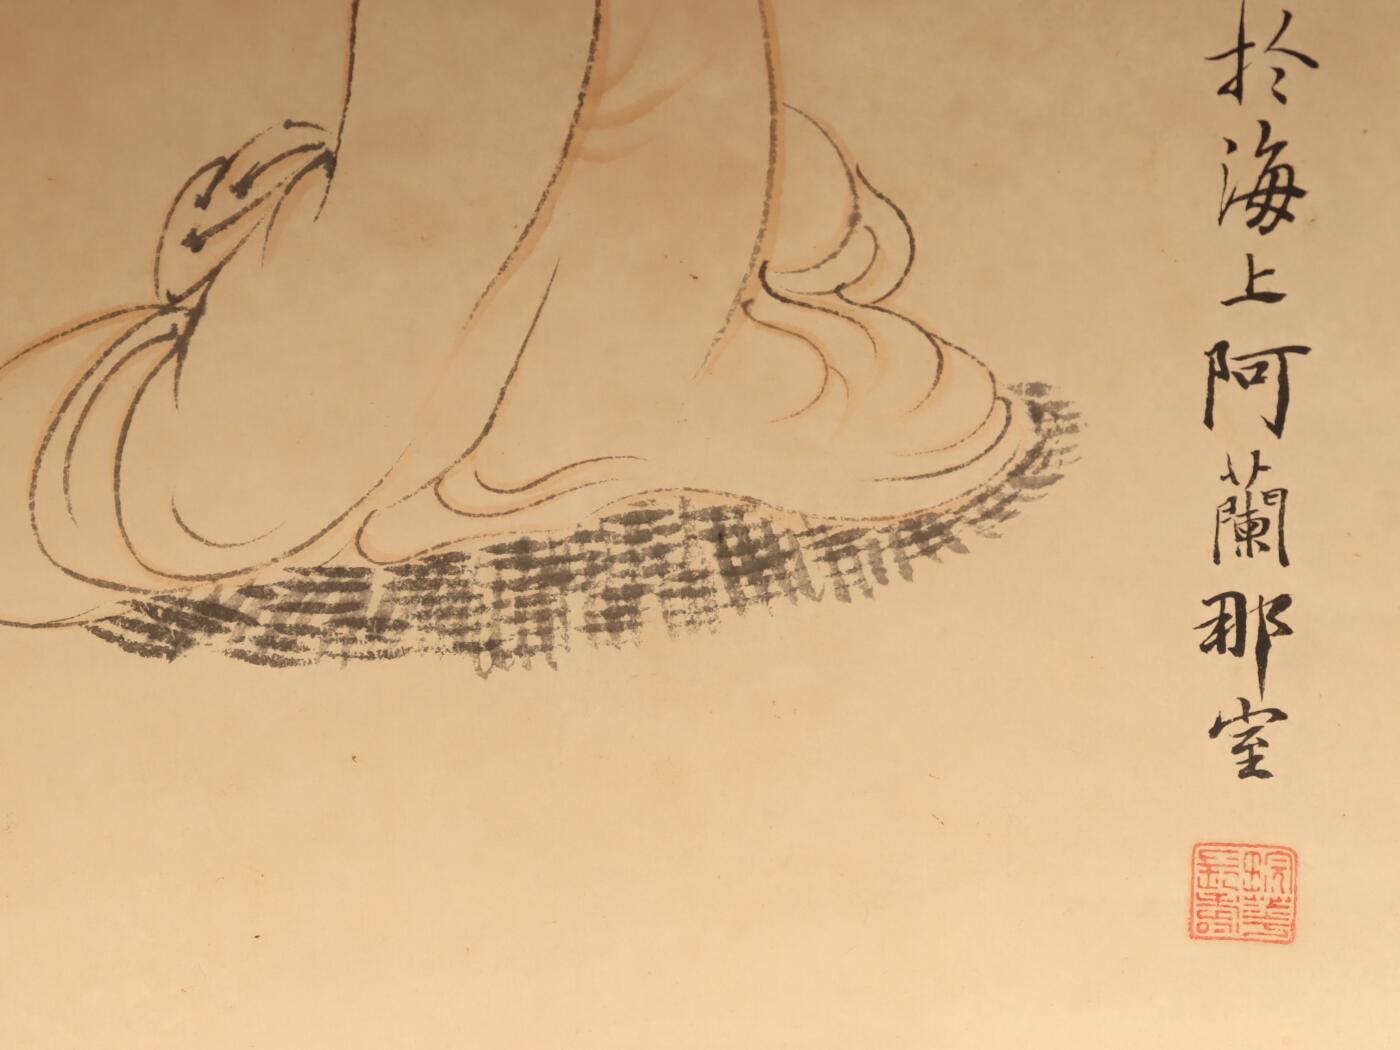 於海上阿蘭那室